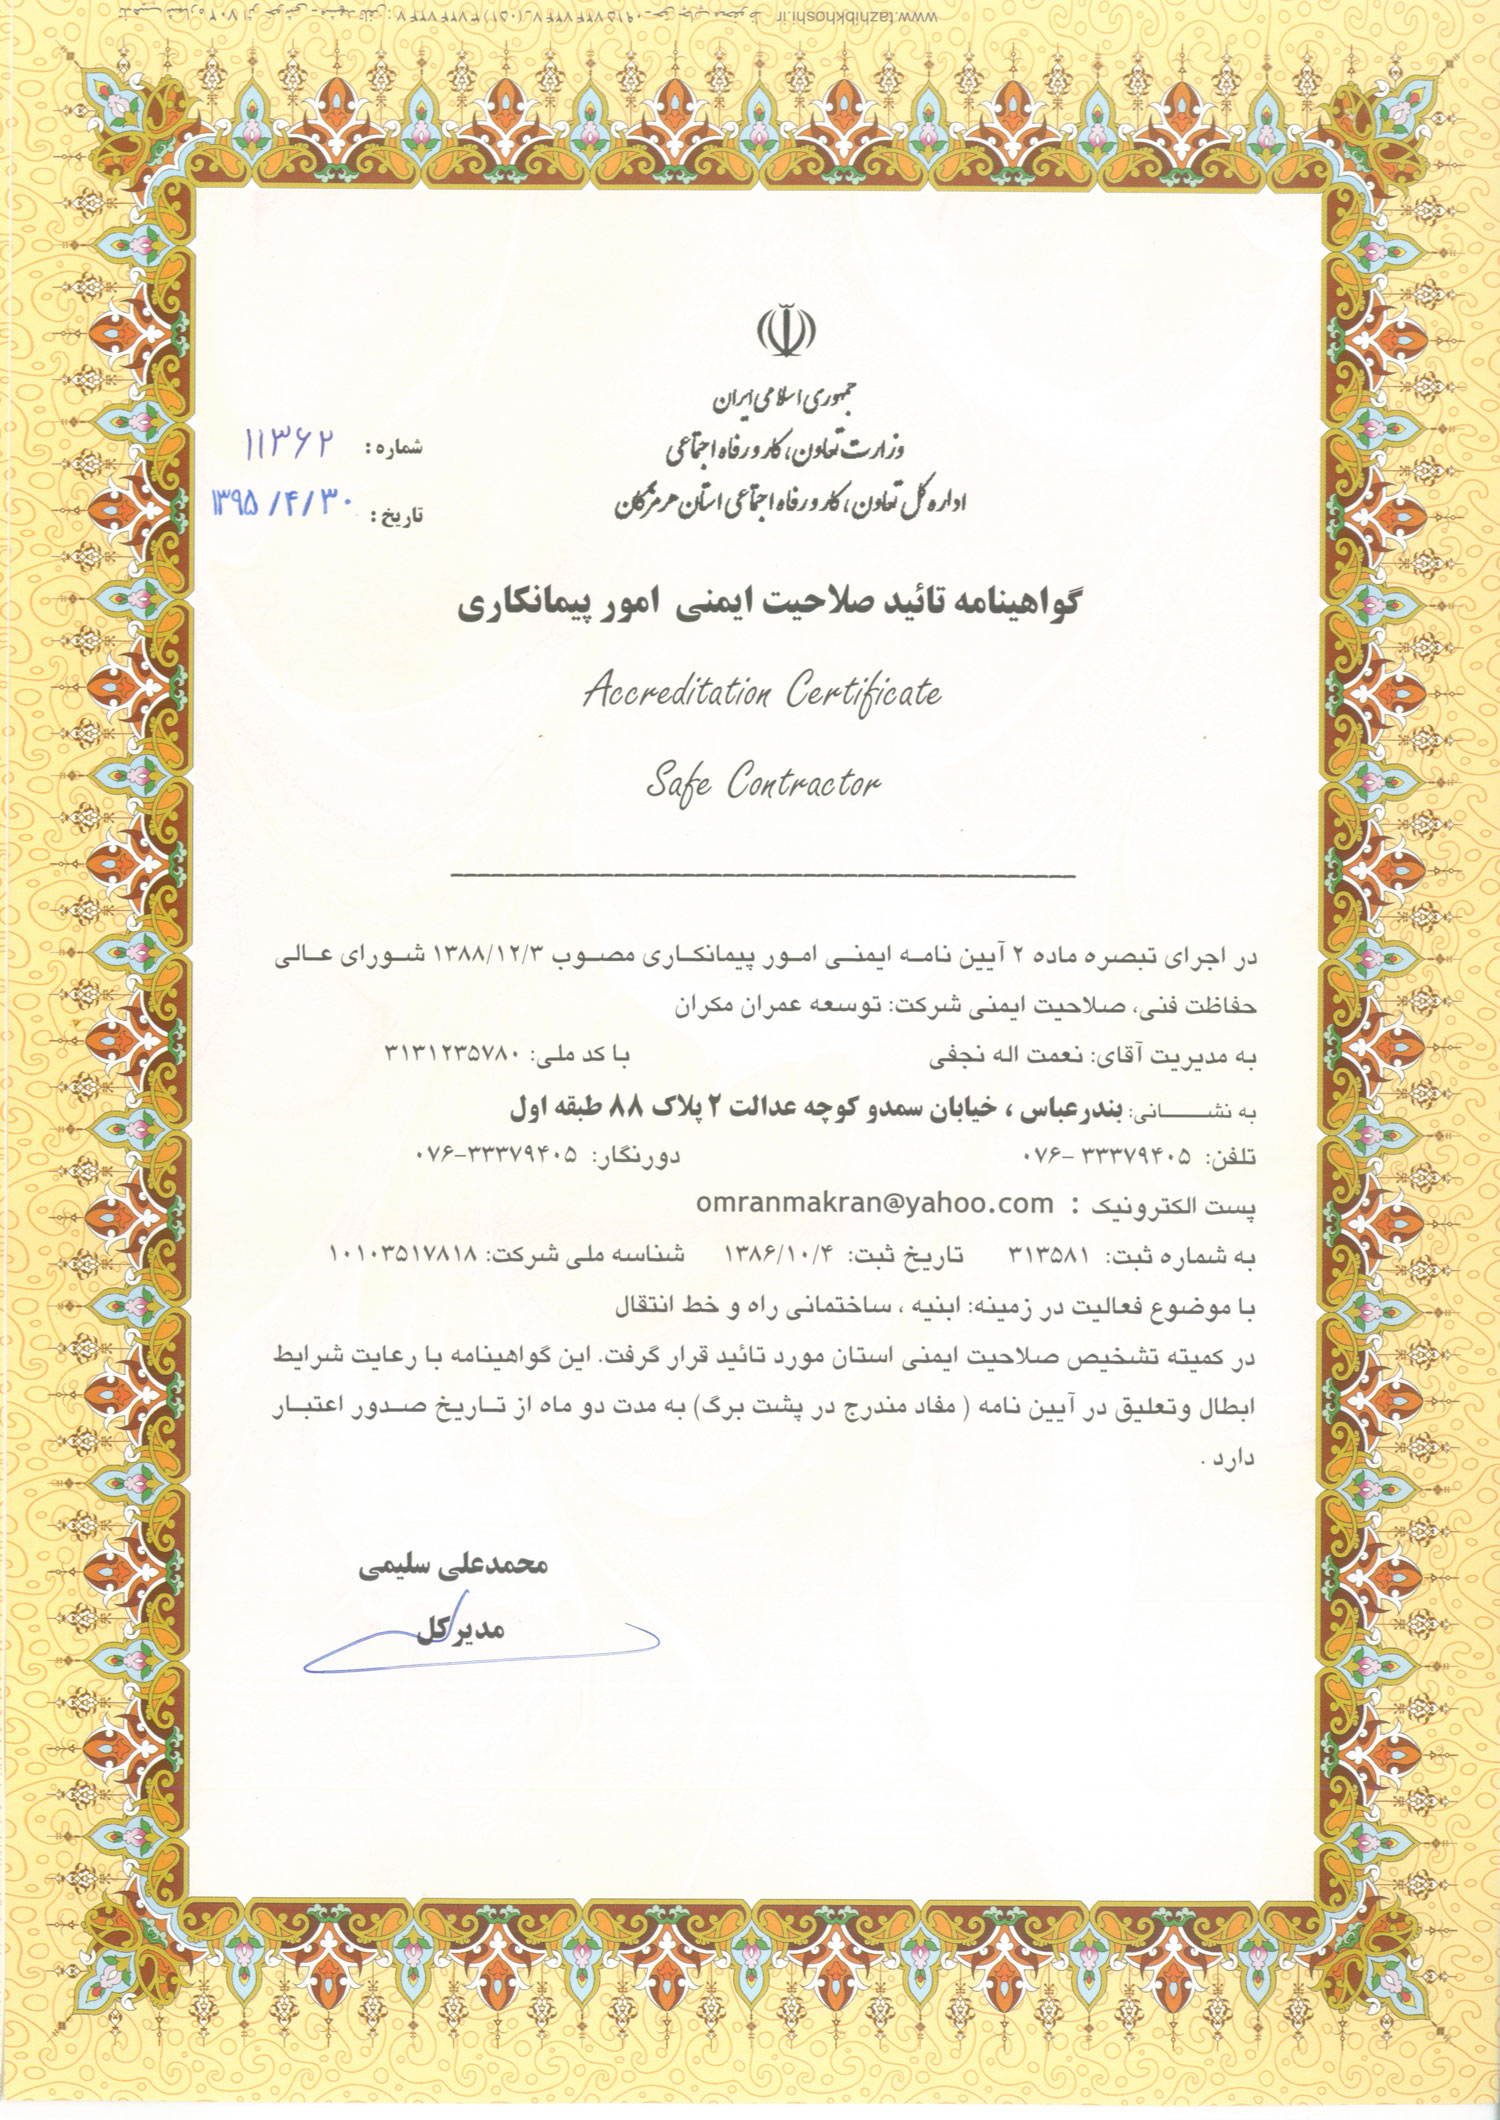 جمهوری اسلامی ایران
وزارت تعاون، کار و رفاه اجتماعی
اداره کل تعاون، کار و رفاه اجتماعی استان هرمزگان
شماره: ۱۱۳۶۲
تاریخ: ۱۳۹۵/۴/۳۰
گواهینامه تائید صلاحیت ایمنی امور پیمانکاری
Accreditation Certificate
Safe Contractor
در اجرای تبصره ماده ۲ آیین نامه ایمنی امور پیمانکاری مصوب ۱۳۸۸/۱۲/۳ شورای عالی
حفاظت فنی، صلاحیت ایمنی شرکت: توسعه عمران مکران
به مدیریت آقای: نعمت اله نجفی با کد ملی: ۳۱۳۱۲۳۵۷۸۰
به نشانی: بندرعباس ، خیابان سمدو کوچه عدالت ۲ پلاک ۸۸ طبقه اول
تلفن: ۳۳۳۷۹۴۰۵ -۰۷۶ دورنگار: ۳۳۳۷۹۴۰۵-۰۷۶
پست الکترونیک : omranmakran@yahoo.com
به شماره ثبت: ۳۱۳۵۸۱ تاریخ ثبت: ۱۳۸۶/۱۰/۴ شناسه ملی شرکت: ۱۰۱۰۳۵۱۷۸۱۸
با موضوع فعالیت در زمینه: ابنیه ، ساختمانی راه و خط انتقال
در کمیته تشخیص صلاحیت ایمنی استان مورد تائید قرار گرفت. این گواهینامه با رعایت شرایط
ابطال وتعلیق در آیین نامه ( مفاد مندرج در پشت برگ) به مدت دو ماه از تاریخ صدور اعتبار
دارد .
محمدعلی سلیمی
مدیرکل
www.tazhibkhoshi.ir